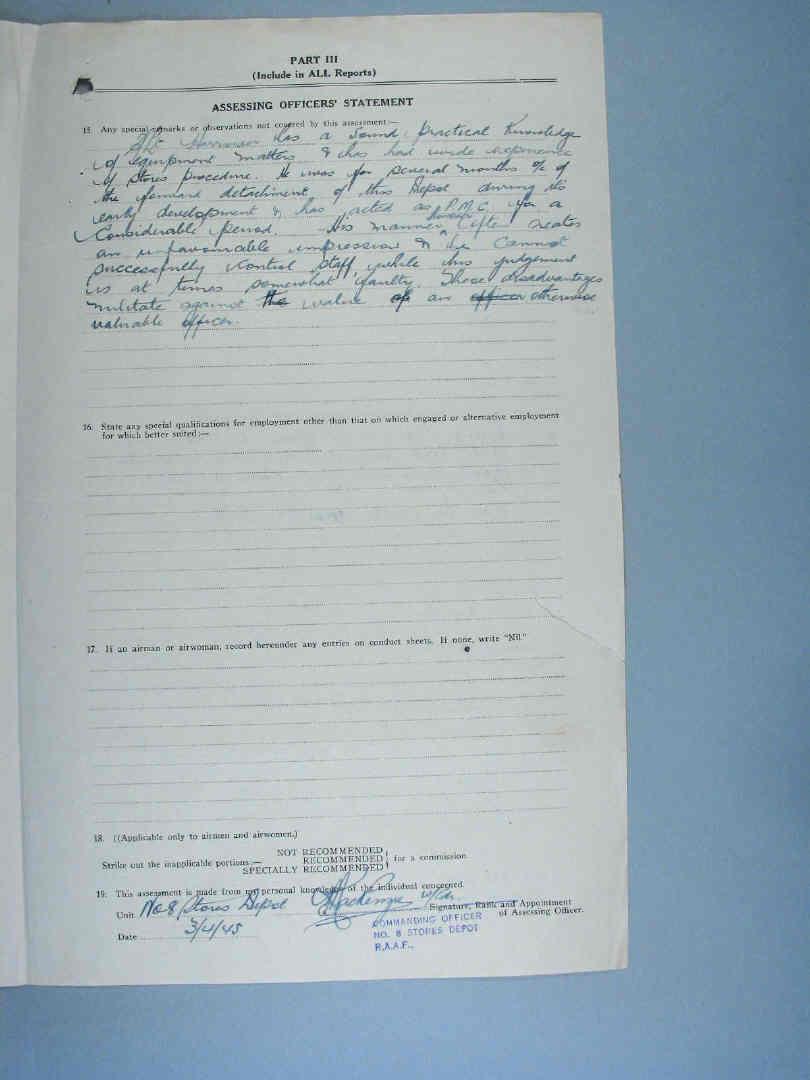 PART III
(Include in ALL Reports)
ASSESSING OFFICERS' STATEMENT
15. Any special remarks or observations not covered by this assessment:—
F/Lt Harrison has a sound practical knowledge
of equipment matters & has had wide experience
of stores procedure. He was for several months O/C of
the forward detachment of this Depot during its
early development & has acted as P.M.C. for a
Considerable period. His manner however often creates
an unfavourable impression & he cannot
successfully control staff, while his judgement
is at times somewhat faulty. These disadvantages
militate against the value of an officer otherwise
valuable officer.
16. State any special qualifications for employment other than that on which engaged or alternative employment
for which better suited:—
17. If an airman or airwoman, record hereunder any entries on conduct sheets. If none, write "Nil."
18. (Applicable only to airmen and airwomen.)
NOT RECOMMENDED
Strike out the inapplicable portions:— RECOMMENDED for a commission
SPECIALLY RECOMMENDED
19. This assessment is made from my personal knowledge of the individual concerned.
Unit No 8 Stores Depot Mackenzie W/Cdr. Signature, Rank and Appointment
of Assessing Officer.
COMMANDING OFFICER
NO. 8 STORES DEPOT
R.A.A.F.,
Date 3/4/45